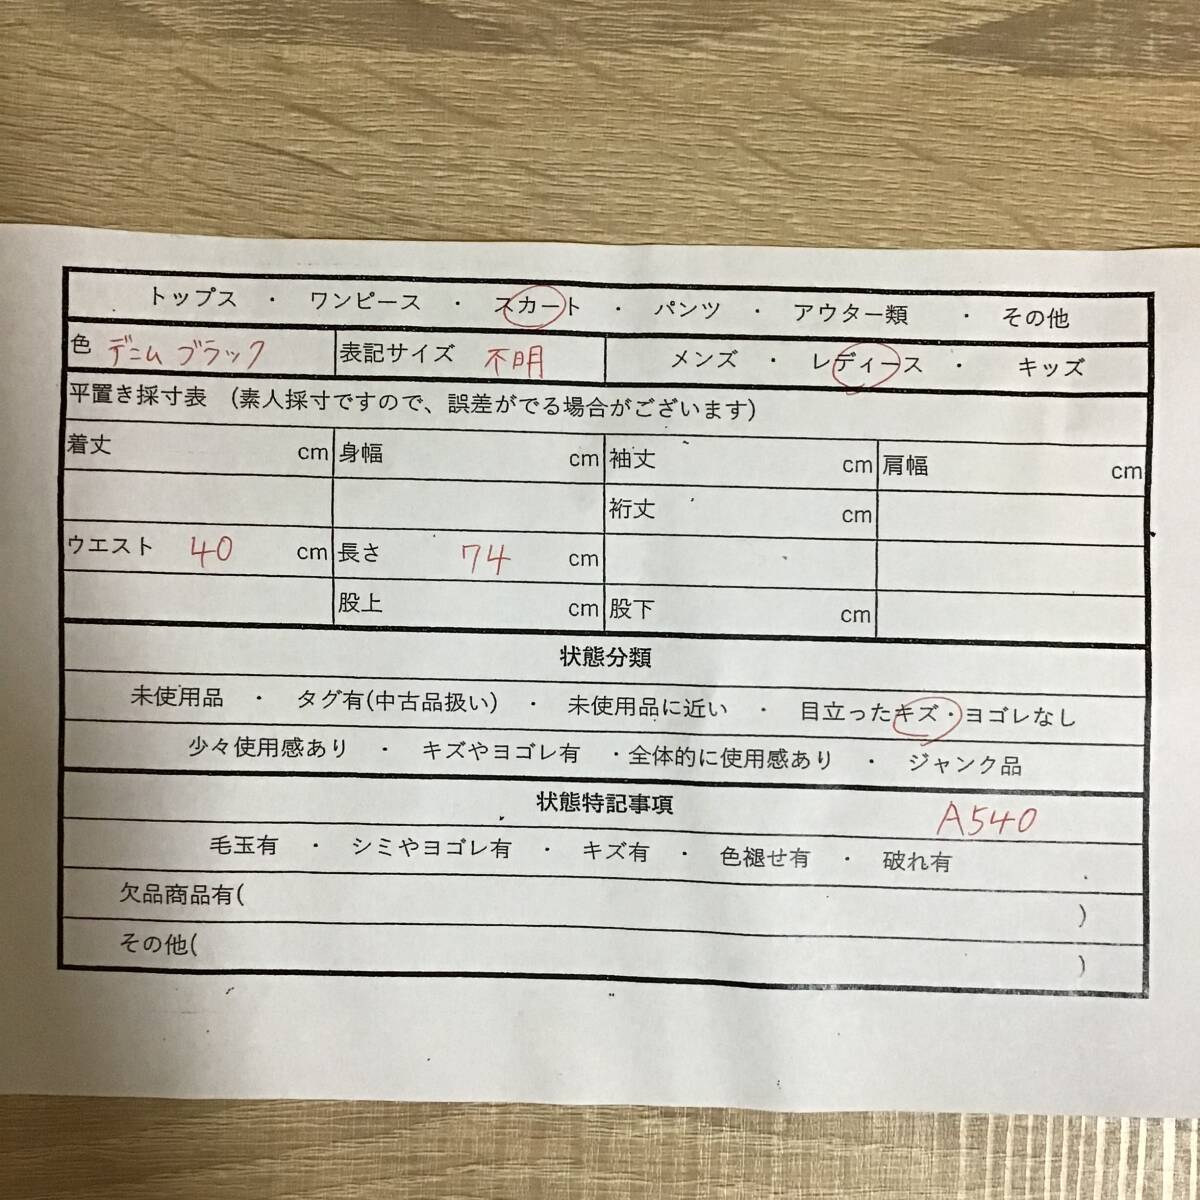 トップス ・ ワンピース ・ スカート ・ パンツ ・ アウター類 ・ その他
色 デニムブラック 表記サイズ 不明 メンズ ・ レディース ・ キッズ
平置き採寸表 (素人採寸ですので、誤差がでる場合がございます)
着丈 cm 身幅 cm 袖丈 cm 肩幅 cm
裄丈 cm
ウエスト 40 cm 長さ 74 cm
股上 cm 股下 cm
状態分類
未使用品 ・ タグ有(中古品扱い) ・ 未使用品に近い ・ 目立ったキズ・ヨゴレなし
少々使用感あり ・ キズやヨゴレ有 ・全体的に使用感あり ・ ジャンク品
状態特記事項 A540
毛玉有 ・ シミやヨゴレ有 ・ キズ有 ・ 色褪せ有 ・ 破れ有
欠品商品有( )
その他( )